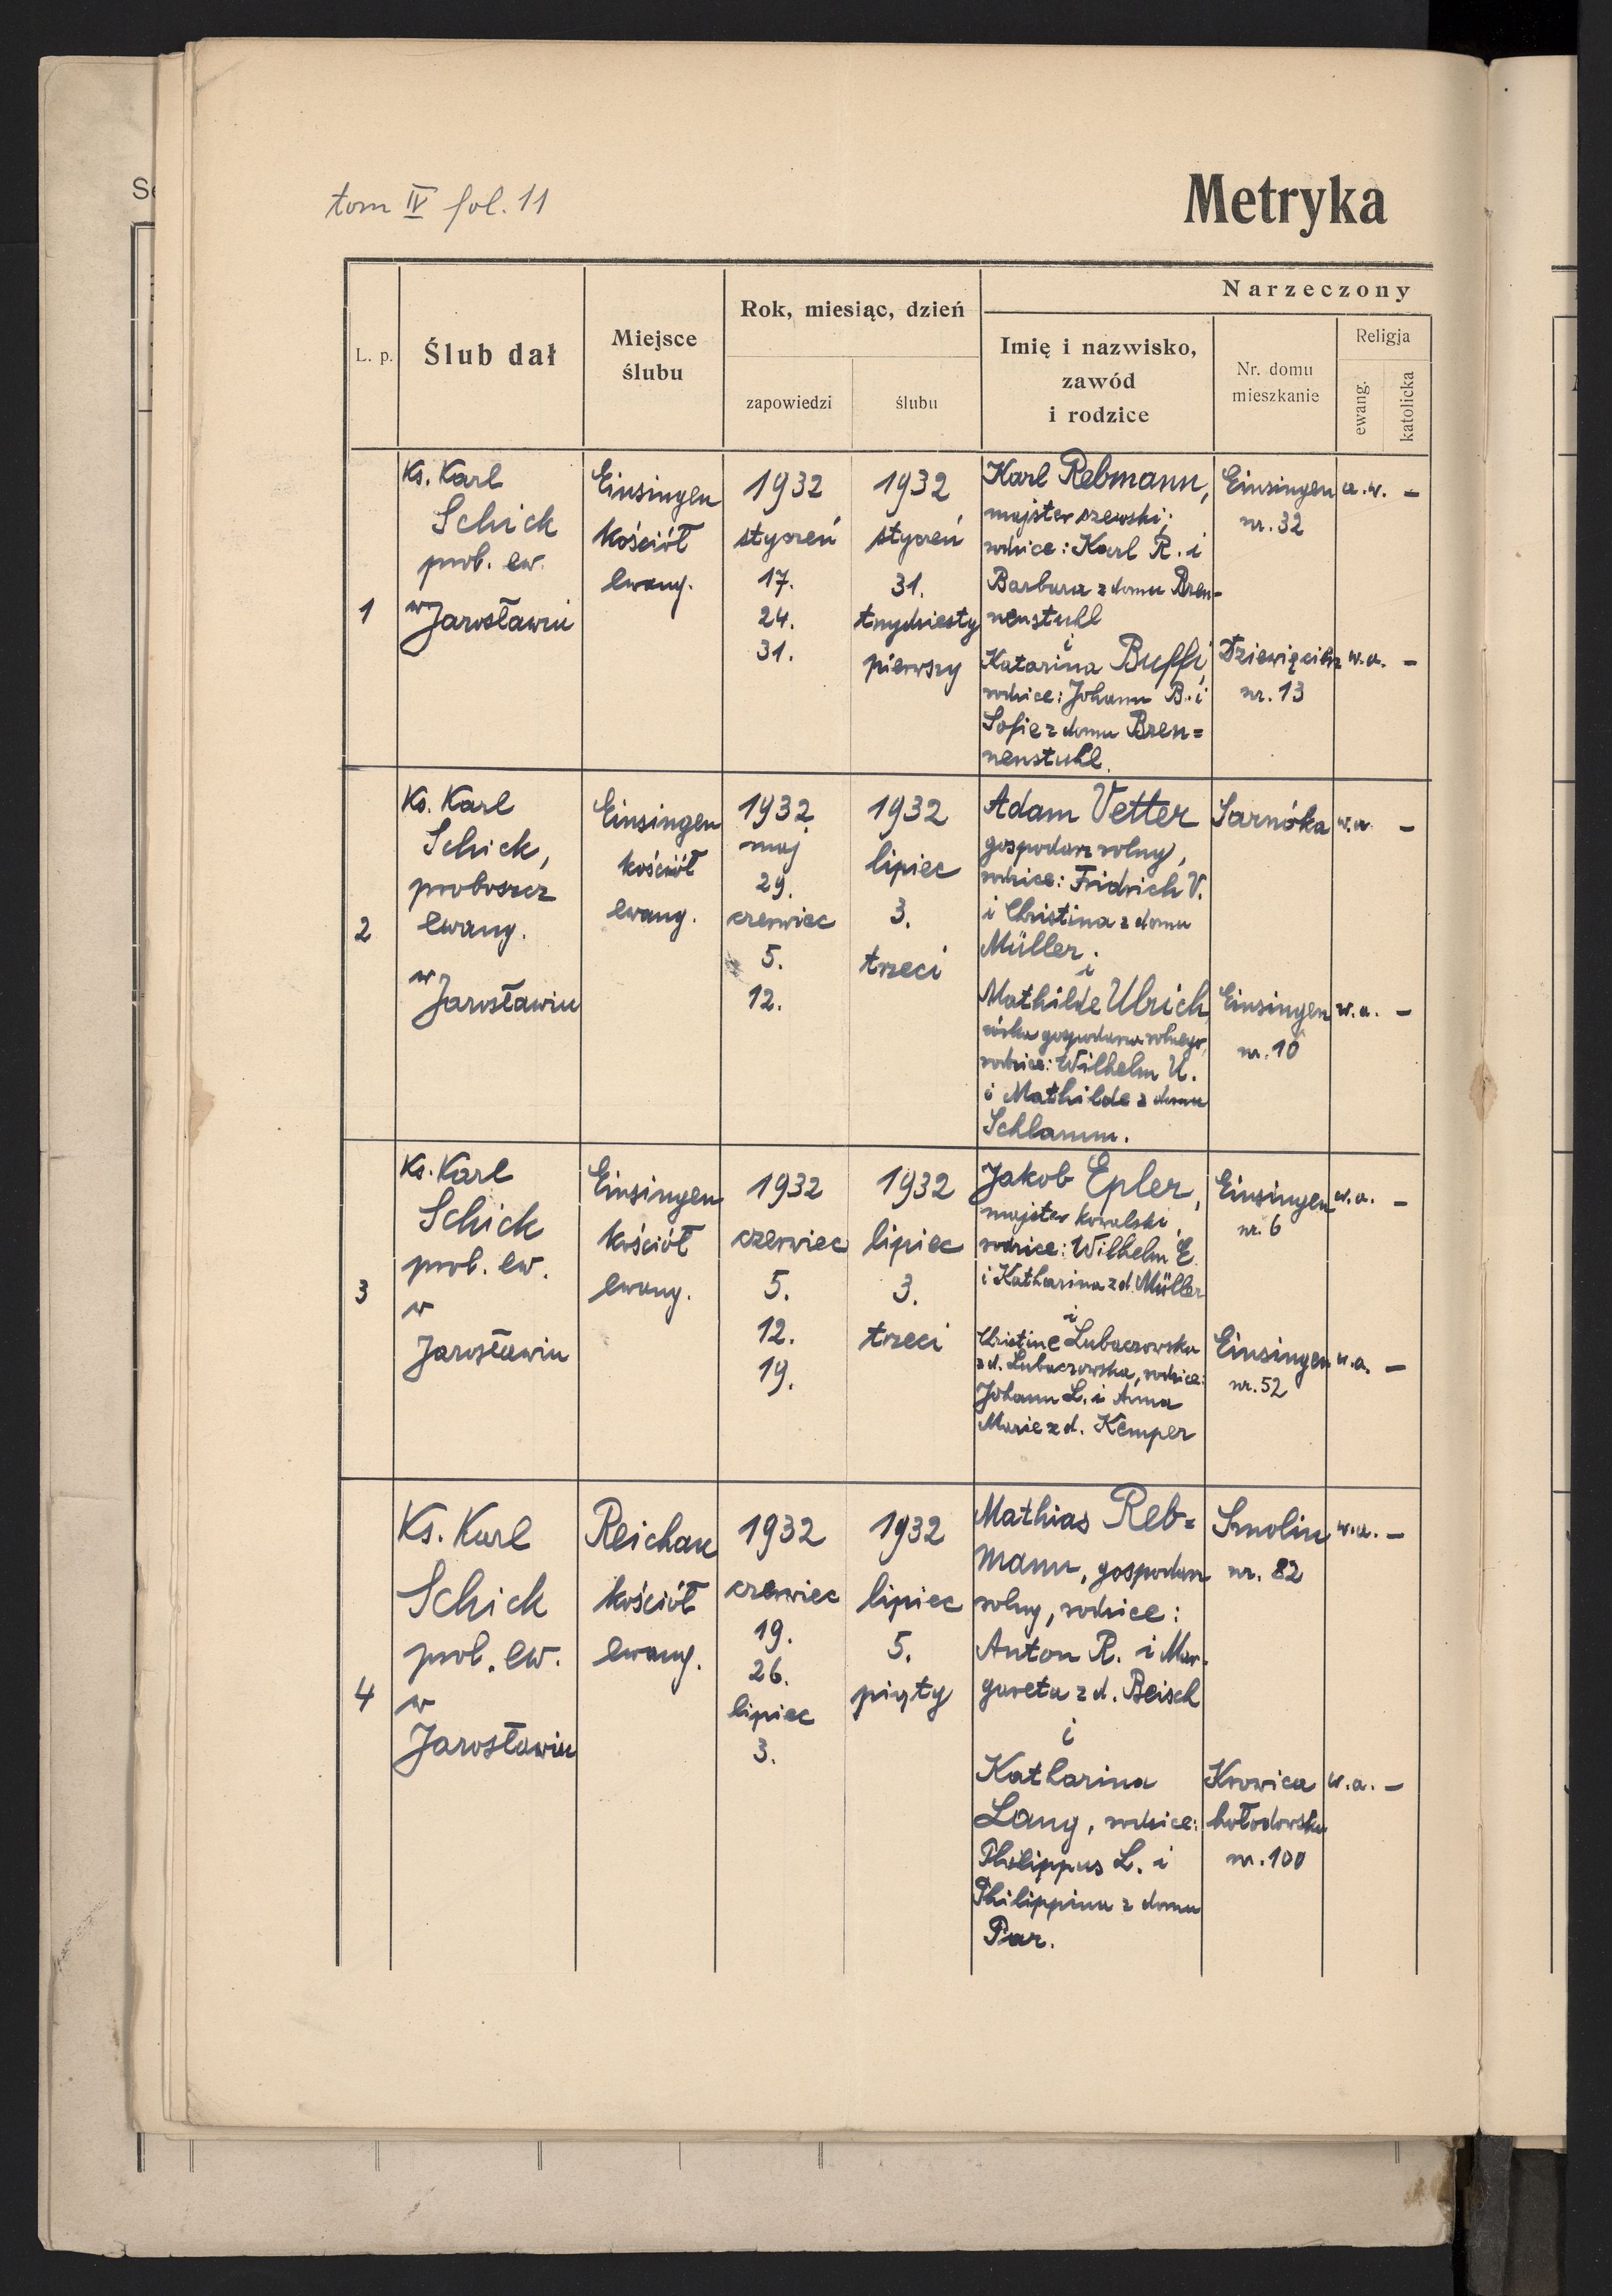 tom IV fol. 11
Metryka
L. p.
Ślub dał
Miejsce
ślubu
Rok, miesiąc, dzień
zapowiedzi
ślubu
Narzeczony
Imię i nazwisko,
zawód
i rodzice
Nr. domu
mieszkanie
Religja
ewang.
katolicka
1
Ks. Karl
Schick
prob. ew.
w Jarosławiu
Einsingen
kościół
ewang.
1932
styczeń
17.
24.
31.
1932
styczeń
31.
trzydziesty
pierwszy
Karl Rebmann,
majster szewski;
rodzice: Karl R. i
Barbara z domu Bren-
nenstuhl
i
Katarina Buffi,
rodzice: Johann B. i
Sofie z domu Bren=
nenstuhl.
Einsingen
nr. 32
a.w. -
nr. 13
w.a. -
2
Ks. Karl
Schick,
proboszcz
ewang.
w
Jarosławiu
Einsingen
kościół
ewang.
1932
maj
29.
czerwiec
5.
12.
1932
lipiec
3.
trzeci
Adam Vetter
gospodarz rolny,
rodzice: Fridrich V.
i Christina z domu
Müller;
i
Mathilde Ulrich,
córka gospodarza rolnego,
rodzice: Wilhelm U.
i Mathilde z domu
Schlamm.
Sarnóka
w.a. -
Einsingen
nr. 10
w.a. -
3
Ks. Karl
Schick
prob. ew.
w
Jarosławiu
Einsingen
kościół
ewang.
1932
czerwiec
5.
12.
19.
1932
lipiec
3.
trzeci
Jakob Epler,
majster kowalski,
rodzice: Wilhelm E.
i Katharina z d. Müller
i
Christine Lubaczowska
z d. Lubaczowska, rodzice:
Johann L. i Anna
Marie z d. Kemper
Einsingen
nr. 6
w.a. -
Einsingen
nr. 52
w.a. -
4
Ks. Karl
Schick
prob. ew.
w
Jarosławiu
Reichau
kościół
ewang.
1932
czerwiec
19.
26.
lipiec
3.
1932
lipiec
5.
piąty
Mathias Reb=
mann, gospodarz
rolny, rodzice:
Anton R. i Mar-
gareta z d. Beisch
i
Katharina
Lang, rodzice:
Philippus L. i
Philippina z domu
Par.
Smolin
nr. 82
w.a. -
Krowica
hołodowska
nr. 100
w.a. -